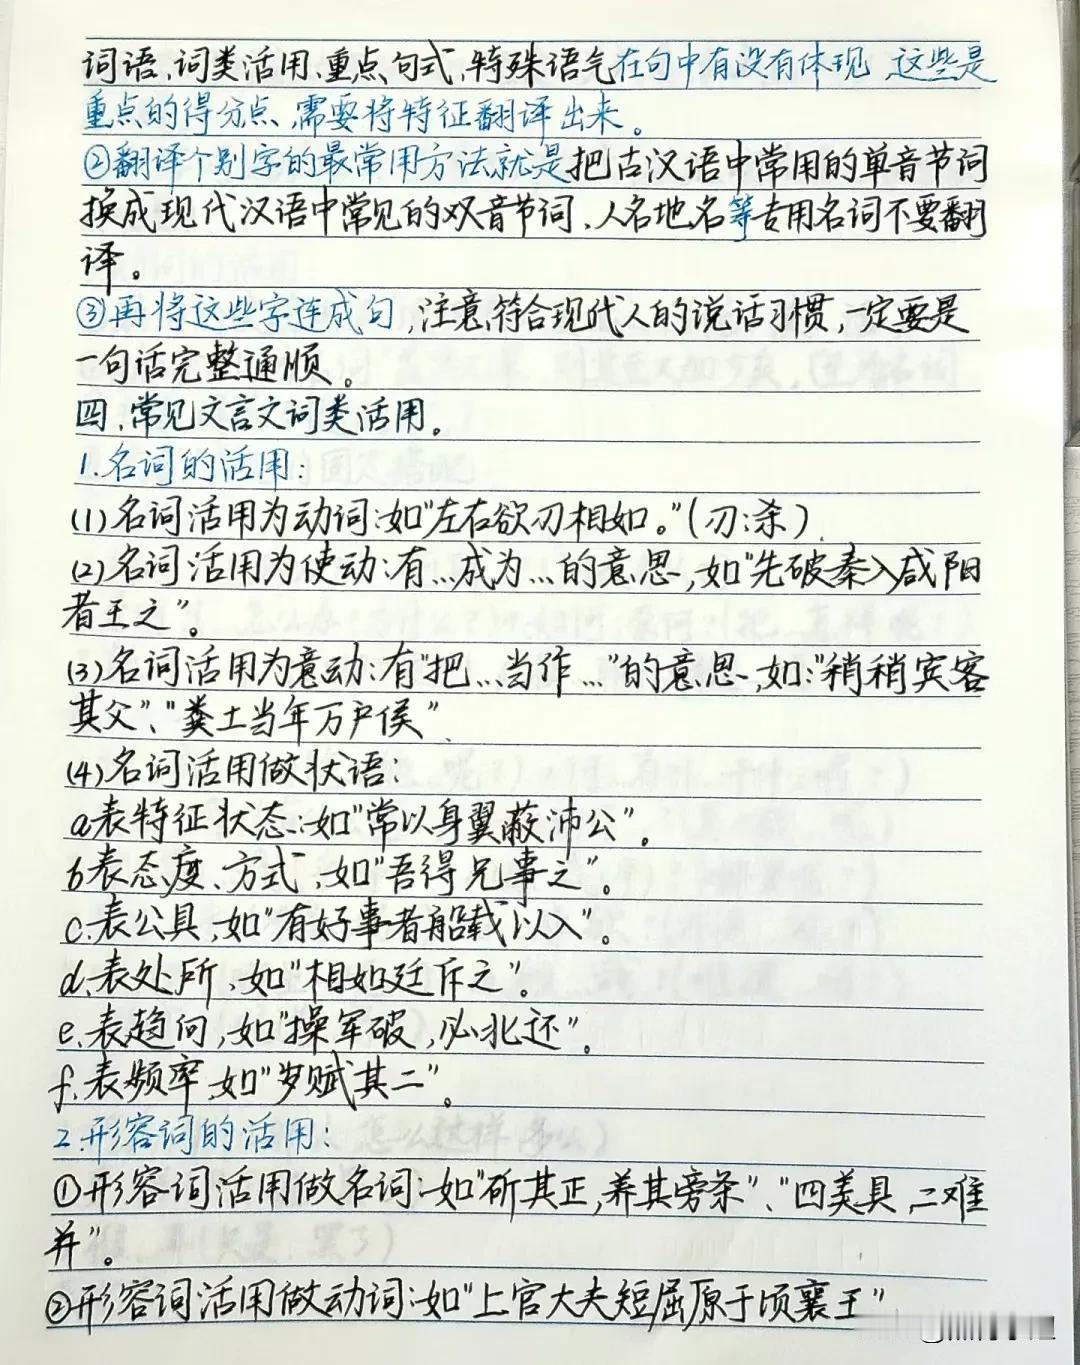 词语、词类活用、重点句式、特殊语气在句中有没有体现,这些是
重点的得分点,需要将特征翻译出来。
②翻译个别字的最常用方法就是把古汉语中常用的单音节词
换成现代汉语中常见的双音节词、人名地名等专用名词不要翻
译。
③再将这些字连成句,注意符合现代人的说话习惯,一定要是
一句话完整通顺。
四、常见文言文词类活用。
1.名词的活用:
(1)名词活用为动词:如"左右欲刃相如。"(刃:杀)
(2)名词活用为使动:有…成为…的意思,如"先破秦入咸阳
者王之"。
(3)名词活用为意动:有"把…当作…"的意思,如:"稍稍宾客
其父"、"粪土当年万户侯"
(4)名词活用做状语:
a表特征状态:如"常以身翼蔽沛公"。
b表态度、方式,如"吾得兄事之"。
c.表公具,如"有好事者船载以入"。
d、表处所、如"相如廷斥之"。
e、表趋向,如"操军破,必北还"。
f.表频率,如"岁赋其二"。
2.形容词的活用:
①形容词活用做名词:如"斫其正,养其旁条"、"四美具,二难
并"。
②形容词活用做动词:如"上官大夫短屈原于顷襄王"